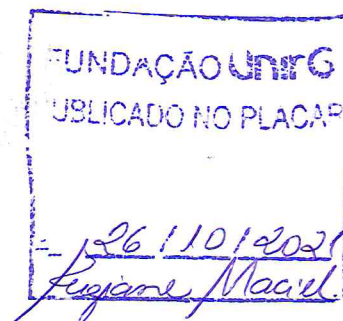 FUNDAÇÃO UnirG
UBLICADO NO PLACAR
26/10/2021
Maciel